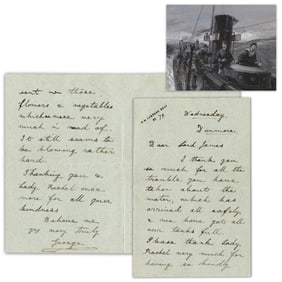 H.M. TORPEDO BOAT
No. 79
Wednesday.
Dunmore.
Dear Lord James
I thank you
so much for all the
trouble you have
taken about the
water, which has
arrived all safely
& we have got all
our tanks full.
Please thank Lady
Rachel very much for
having so kindly
sent us those
flowers & vegetables
which were very
much in need of.
It still seems to
be blowing rather
hard.
Thanking you &
Lady Rachel once
more for all your
kindness
Believe me
yrs very truly
George